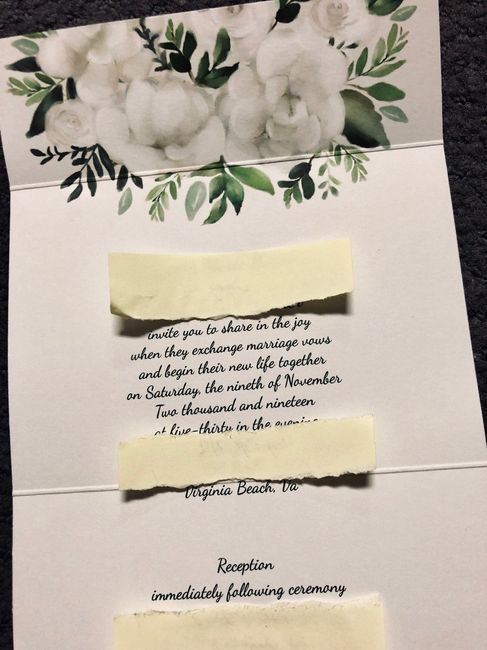 invite you to share in the joy
when they exchange marriage vows
and begin their new life together
on Saturday, the nineth of November
Two thousand and nineteen
at five-thirty in the evening
Virginia Beach, Va
Reception
immediately following ceremony